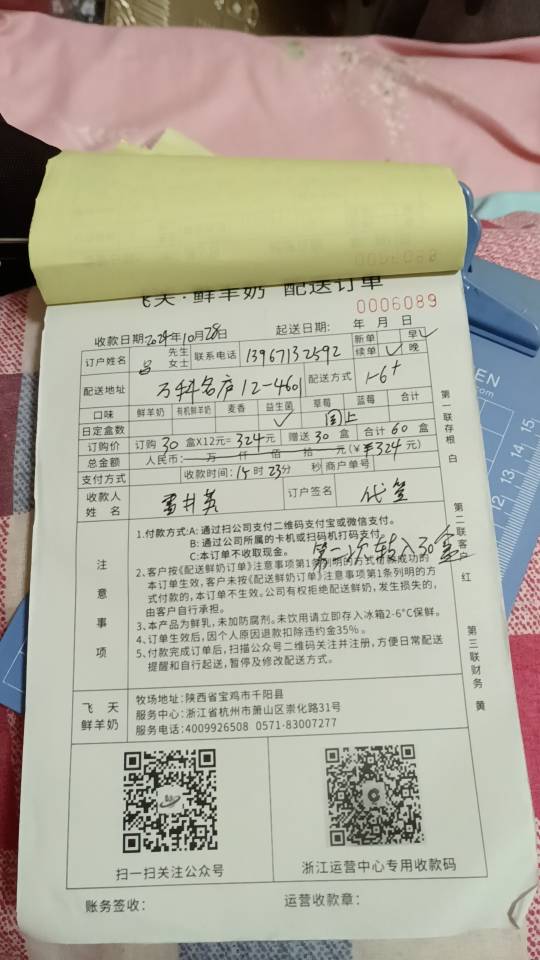 飞天·鲜羊奶 配送订单
0006089
收款日期2024年10月28日 起送日期: 年 月 日
订户姓名 吕 先生 女士 联系电话 13967132592 新单 早✓
续单 ✓ 晚
配送地址 万科名庐12-460 配送方式 1-6
口味 鲜羊奶 有机鲜羊奶 麦香 益生菌 草莓 蓝莓 合计
日定盒数 ✓ 同上
订购价 订购 30 盒X12元= 324元 赠送 30 盒 合计 60 盒
总金额 人民币: 万 仟 佰 拾 元(¥324元)
支付方式 收款时间: 15时 23分 秒 商户单号
收款人姓名 订户签名 代签
注意事项
1.付款方式:A: 通过扫公司支付二维码支付宝或微信支付。
B: 通过公司所属的卡机或扫码机打码支付。
C:本订单不收取现金。
第二次转入30盒
2.客户按《配送鲜奶订单》注意事项第1条列明的方式付款成功的
本订单生效,客户未按《配送鲜奶订单》注意事项第1条列明的方
式付款的,本订单不生效。公司有权拒绝配送鲜奶,发生损失的,
由客户自行承担。
3.本产品为鲜乳,未加防腐剂。未饮用请立即存入冰箱2-6°C保鲜。
4.订单生效后,因个人原因退款扣除违约金35%。
5.付款完成订单后,扫描公众号二维码关注并注册,方便日常配送
提醒和自行起送,暂停及修改配送方式。
飞天鲜羊奶
牧场地址:陕西省宝鸡市千阳县
服务中心:浙江省杭州市萧山区崇化路31号
服务电话:4009926508 0571-83007277
扫一扫关注公众号 浙江运营中心专用收款码
账务签收: 运营收款章:
第一联存根 白
第二联客户 红
第三联财务 黄